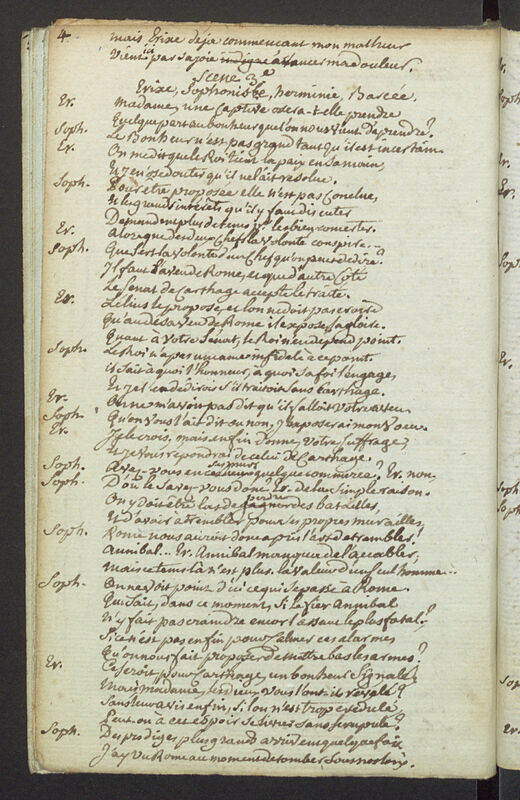 4.
mais Erixe déja commencant mon malheur
Vient ici par sa joie avancer ma douleur.
Scene 3e
Erixe, Sophonisbe, herminie, Barcée.
Er. Madame, une Captive osera-t-elle prendre
Quelque part au bonheur que l'on nous vient d'aprendre?
Soph. Le Bonheur n'est pas grand tant qu'il est incertain.
Er. On me dit que le Roi tient la paix en sa main,
Et je n'ose douter qu'il ne l'ait resolue.
Soph. Pour etre proposée elle n'est pas Conclue,
Et les grands interets qu'il y faut discuter
Demandent plus de tems
Er. Alors que deux Chefs la volonté conspire...
Soph. Que sert la volonté d'un Chef qu'on peut dedire?
Il faut l'aveu de Rome, et que d'autre Coté
Le Senat de Carthage accepte le traité.
Er. Lelius le propose, et l'on ne doit pas croire
Qu'au desaveu de Rome il expose sa gloire.
Quant a Votre Senat, le Roi n'en depend point.
Soph. Le Roi n'a pas une ame infidele a ce point.
Il sait a quoi l'honneur, a quoi sa foi l'engage,
Et je l'en dedirois s'il traitoit sans Carthage.
Er. On ne m'avoit pas dit qu'il fallut votre aveu
Soph. Qu'on vous l'ait dit ou non, il m'importe assez peu.
Er. Je le crois, mais enfin donnez votre suffrage,
Et je vous repondrai de celui de Carthage.
Soph. Avez-vous en ces murs quelque commerce? Er. non.
Soph. D'où le Savez-vous donc. Er. de la simple raison.
On y doit être las de perdre des batailles,
Et d'avoir a trembler pour ses propres murailles
Soph. Rome nous auroit donc apris l'art de trembler!
Annibal... Er. Annibal manqua de l'accabler.
Mais ce tems là n'est plus. la Valeur d'un seul homme...
Soph. On ne voit point d'ici ce qui se passe à Rome.
Qui sait, dans ce moment, Si le fier Annibal
N'y fait pas craindre encor l'assaut le plus fatal?
Si ce n'est pas enfin pour calmer ces alarmes
Qu'on nous fait proposer de mettre bas les armes?
Er. Ce seroit pour Carthage un bonheur Signalé
Mais, madame, les dieux, vous l'ont-ils revelé?
Sans leur avis enfin, si l'on n'est trop credule,
Peut-on a cet espoir se livrer sans scrupule?
Soph. Des prodiges plus grands arrivent quelquefois
J'ay vu Rome au moment de tomber sous nos loix.